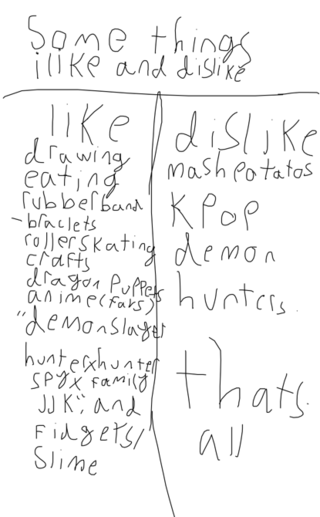 Some things
ilike and dislike
like
drawing
eating
rubberband
-braclets
rollerskating
crafts
dragon puppets
anime(favs)
"demonslayer
hunterxhunter
spyx family
JJK", and
Fidgets/
Slime
dislike
mashpotatos
KPop
demon
hunters
thats
all